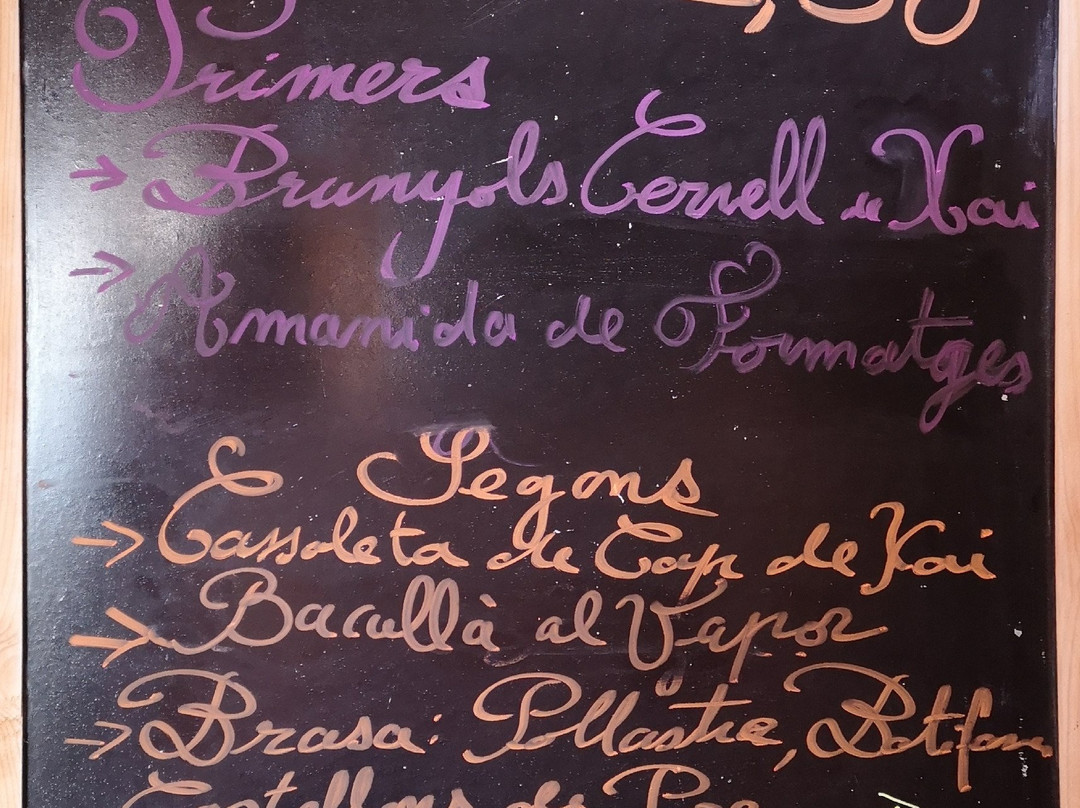 Primers
→ Brunyols Cervell de Xai
→ Amanida de Formatges
Segons
→ Cassoleta de Cap de Xai
→ Bacallà al Vapor
→ Brasa: Pollastre, Botifarra
Costellons de Porc